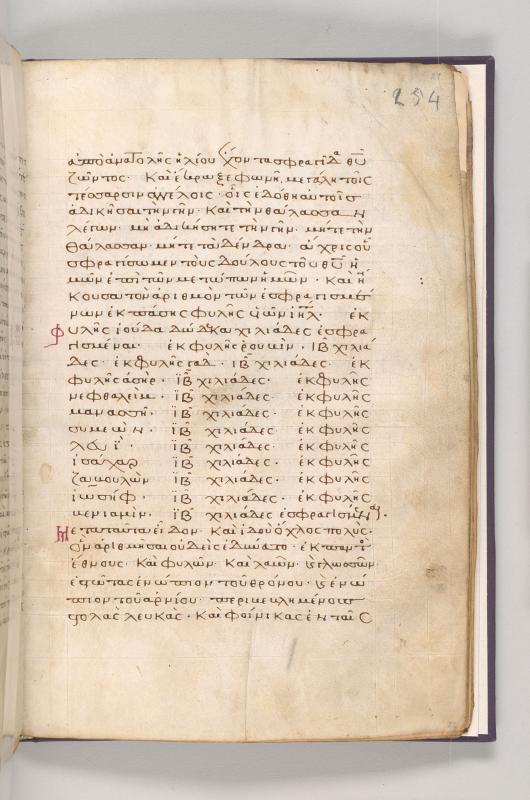 254
ἀπὸ ἀνατολῆς ἡλίου ἔχοντα σφραγίδα θῦ
ζῶντος· Καὶ ἔκραξε φωνῆ μεγάλη τοῖς
τέσσαρσιν ἀγγέλοις· οἷς ἐδόθη αὐτοῖς
ἀδικῆσαι τὴν γῆν· Καὶ τὴν θάλασσαν
λέγων· μὴ ἀδικήσητε τὴν γῆν· μήτε τὴν
θάλασσαν· μήτε τὰ δένδρα· ἄχρις οὗ
σφραγίσωμεν τοὺς δούλους τοῦ θῦ ἡ
μῶν ἐπὶ τῶν μετώπων ἡμῶν· Καὶ ἤ
κουσα τὸν ἀριθμὸν τῶν ἐσφραγισμέ
νων ἐκ πάσης φυλῆς ὑῶν ιηλ· ἐκ
φυλῆς ἰούδα δώδεκα χιλιάδες ἐσφρα
γισμέναι· ἐκ φυλῆς ρουβὶμ· ΙΒ χιλιά
δες· ἐκ φυλῆς γὰδ· ΙΒ χιλιάδες· ἐκ
φυλῆς ἀσὴρ· ΙΒ χιλιάδες· ἐκ φυλῆς
νεφθαλεὶμ· ΙΒ χιλιάδες· ἐκ φυλῆς
μανασσῆ· ΙΒ χιλιάδες· ἐκ φυλῆς
συμεὼν· ΙΒ χιλιάδες· ἐκ φυλῆς
λευΐ· ΙΒ χιλιάδες· ἐκ φυλῆς
ἰσάχαρ ΙΒ χιλιάδες· ἐκ φυλῆς
ζαβουλὼν ΙΒ χιλιάδες· ἐκ φυλῆς
ἰωσὴφ· ΙΒ χιλιάδες· ἐκ φυλῆς
βενιαμὶν· ΙΒ χιλιάδες ἐσφραγισμέναι·
Μετὰ ταῦτα εἶδον· Καὶ ἰδοὺ ὄχλος πολὺς·
ὃν ἀριθμῆσαι οὐδεὶς ἐδύνατο· ἐκ παντὸς
ἔθνους· Καὶ φυλῶν· Καὶ λαῶν· ϗ γλωσσῶν·
ἑστῶτας ἐνώπιον τοῦ θρόνου· ϗ ἐνώ
πιον τοῦ ἀρνίου· περιβεβλημένους
στολὰς λευκὰς· Καὶ φοίνικας ἐν ταῖς